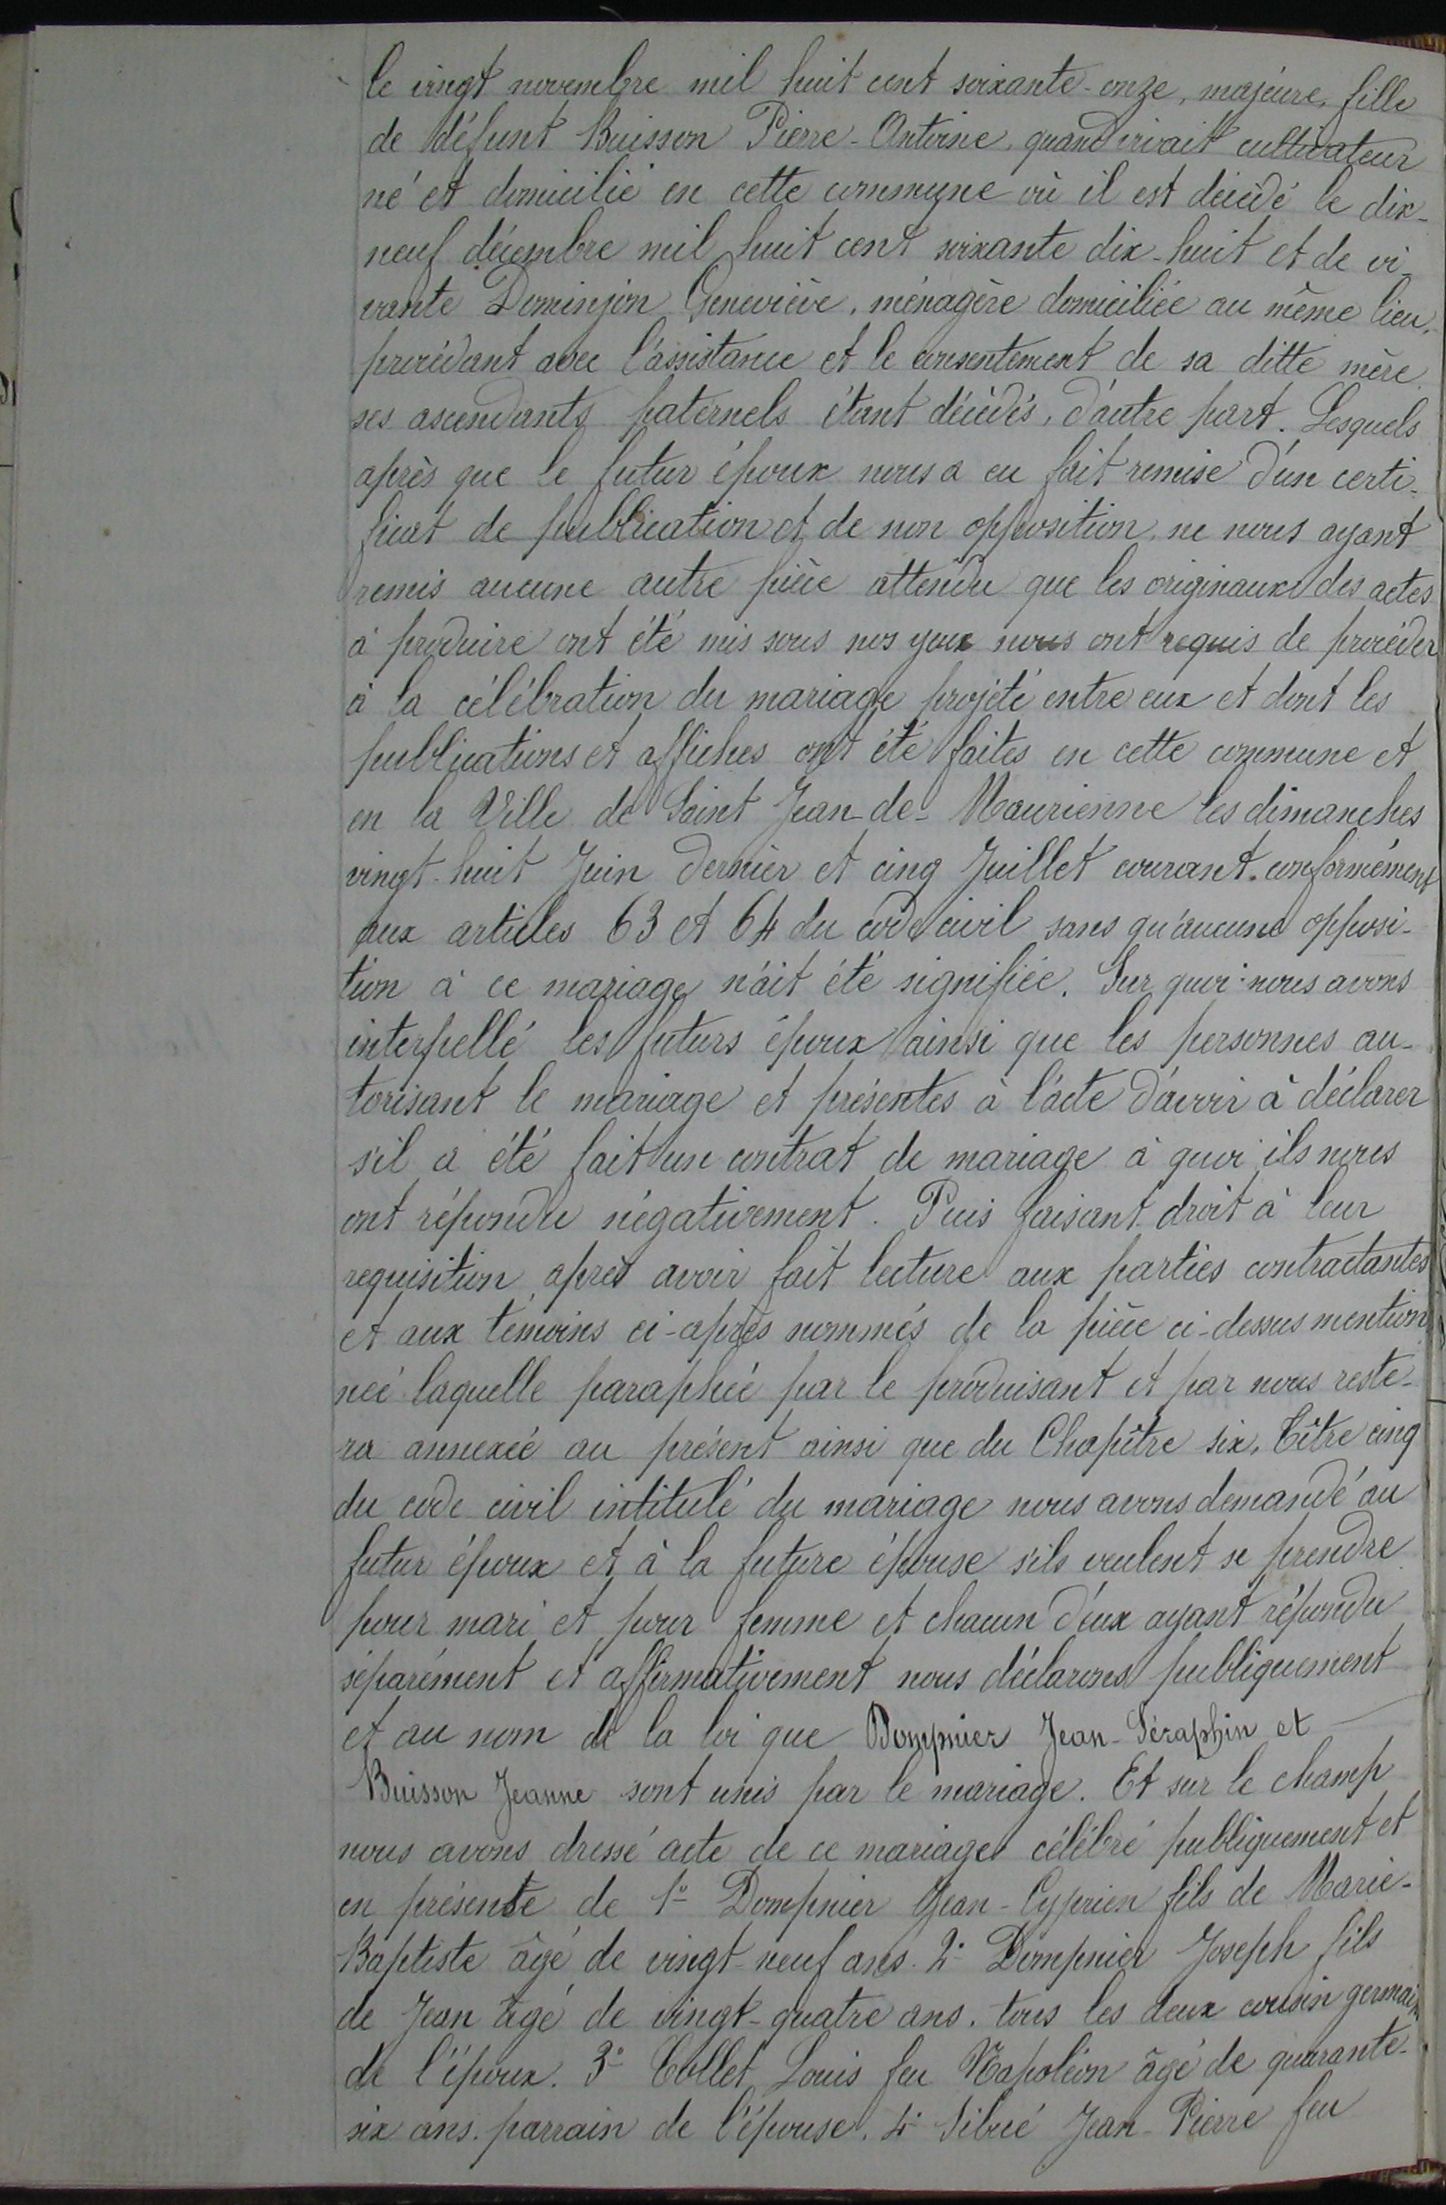 le vingt novembre mil huit cent soixante-onze, majeure, fille
de défunt Buisson Pierre-Antoine, quand vivait cultivateur
né et domicilié en cette commune où il est décédé le dix-
neuf décembre mil huit cent soixante dix-huit et de vi-
vante Dominjon Geneviève, ménagère domiciliée au même lieu,
procédant avec l'assistance et le consentement de sa ditte mère
ses ascendants paternels étant décédés, d'autre part. Lesquels
après que le futur époux nous a eu fait remise d'un certi-
ficat de publication et de non opposition, ne nous ayant
remis aucune autre pièce attendu que les originaux des actes
à produire ont été mis sous nos yeux nous ont requis de procéder
à la célébration du mariage projeté entre eux et dont les
publications et affiches ont été faites en cette commune et
en la Ville de Saint Jean-de-Maurienne les dimanches
vingt-huit Juin dernier et cinq Juillet courant. conformément
aux articles 63 et 64 du code civil sans qu'aucune opposi-
tion à ce mariage n'ait été signifiée. Sur quoi nous avons
interpellé les futurs époux ainsi que les personnes au-
torisant le mariage et présentes à l'acte d'avoir à déclarer
s'il a été fait un contrat de mariage à quoi ils nous
ont répondu négativement. Puis faisant droit à leur
requisition, après avoir fait lecture aux parties contractantes
et aux témoins ci-après nommés de la pièce ci-dessus mention
née laquelle paraphée par le produisant et par nous reste-
ra annexée au présent ainsi que du Chapître six, Titre cinq
du code civil intitulé du mariage nous avons demandé au
futur époux et à la future épouse s'ils veulent se prendre
pour mari et pour femme et chacun d'eux ayant répondu
séparément et affirmativement nous déclarons publiquement
et au nom de la loi que Dompnier Jean-Séraphin et
Buisson Jeanne sont unis par le mariage. Et sur le champ
nous avons dressé acte de ce mariage célébré publiquement et
en présente de 1° Dompnier Jean-Cyprien fils de Marie-
Baptiste âgé de vingt-neuf ans. 2° Dompnier Joseph fils
de Jean âgé de vingt-quatre ans. tous les deux cousin germain
de l'époux. 3° Collet Louis feu Napoléon âgé de quarante-
six ans. parrain de l'épouse. 4° Sibué Jean-Pierre feu